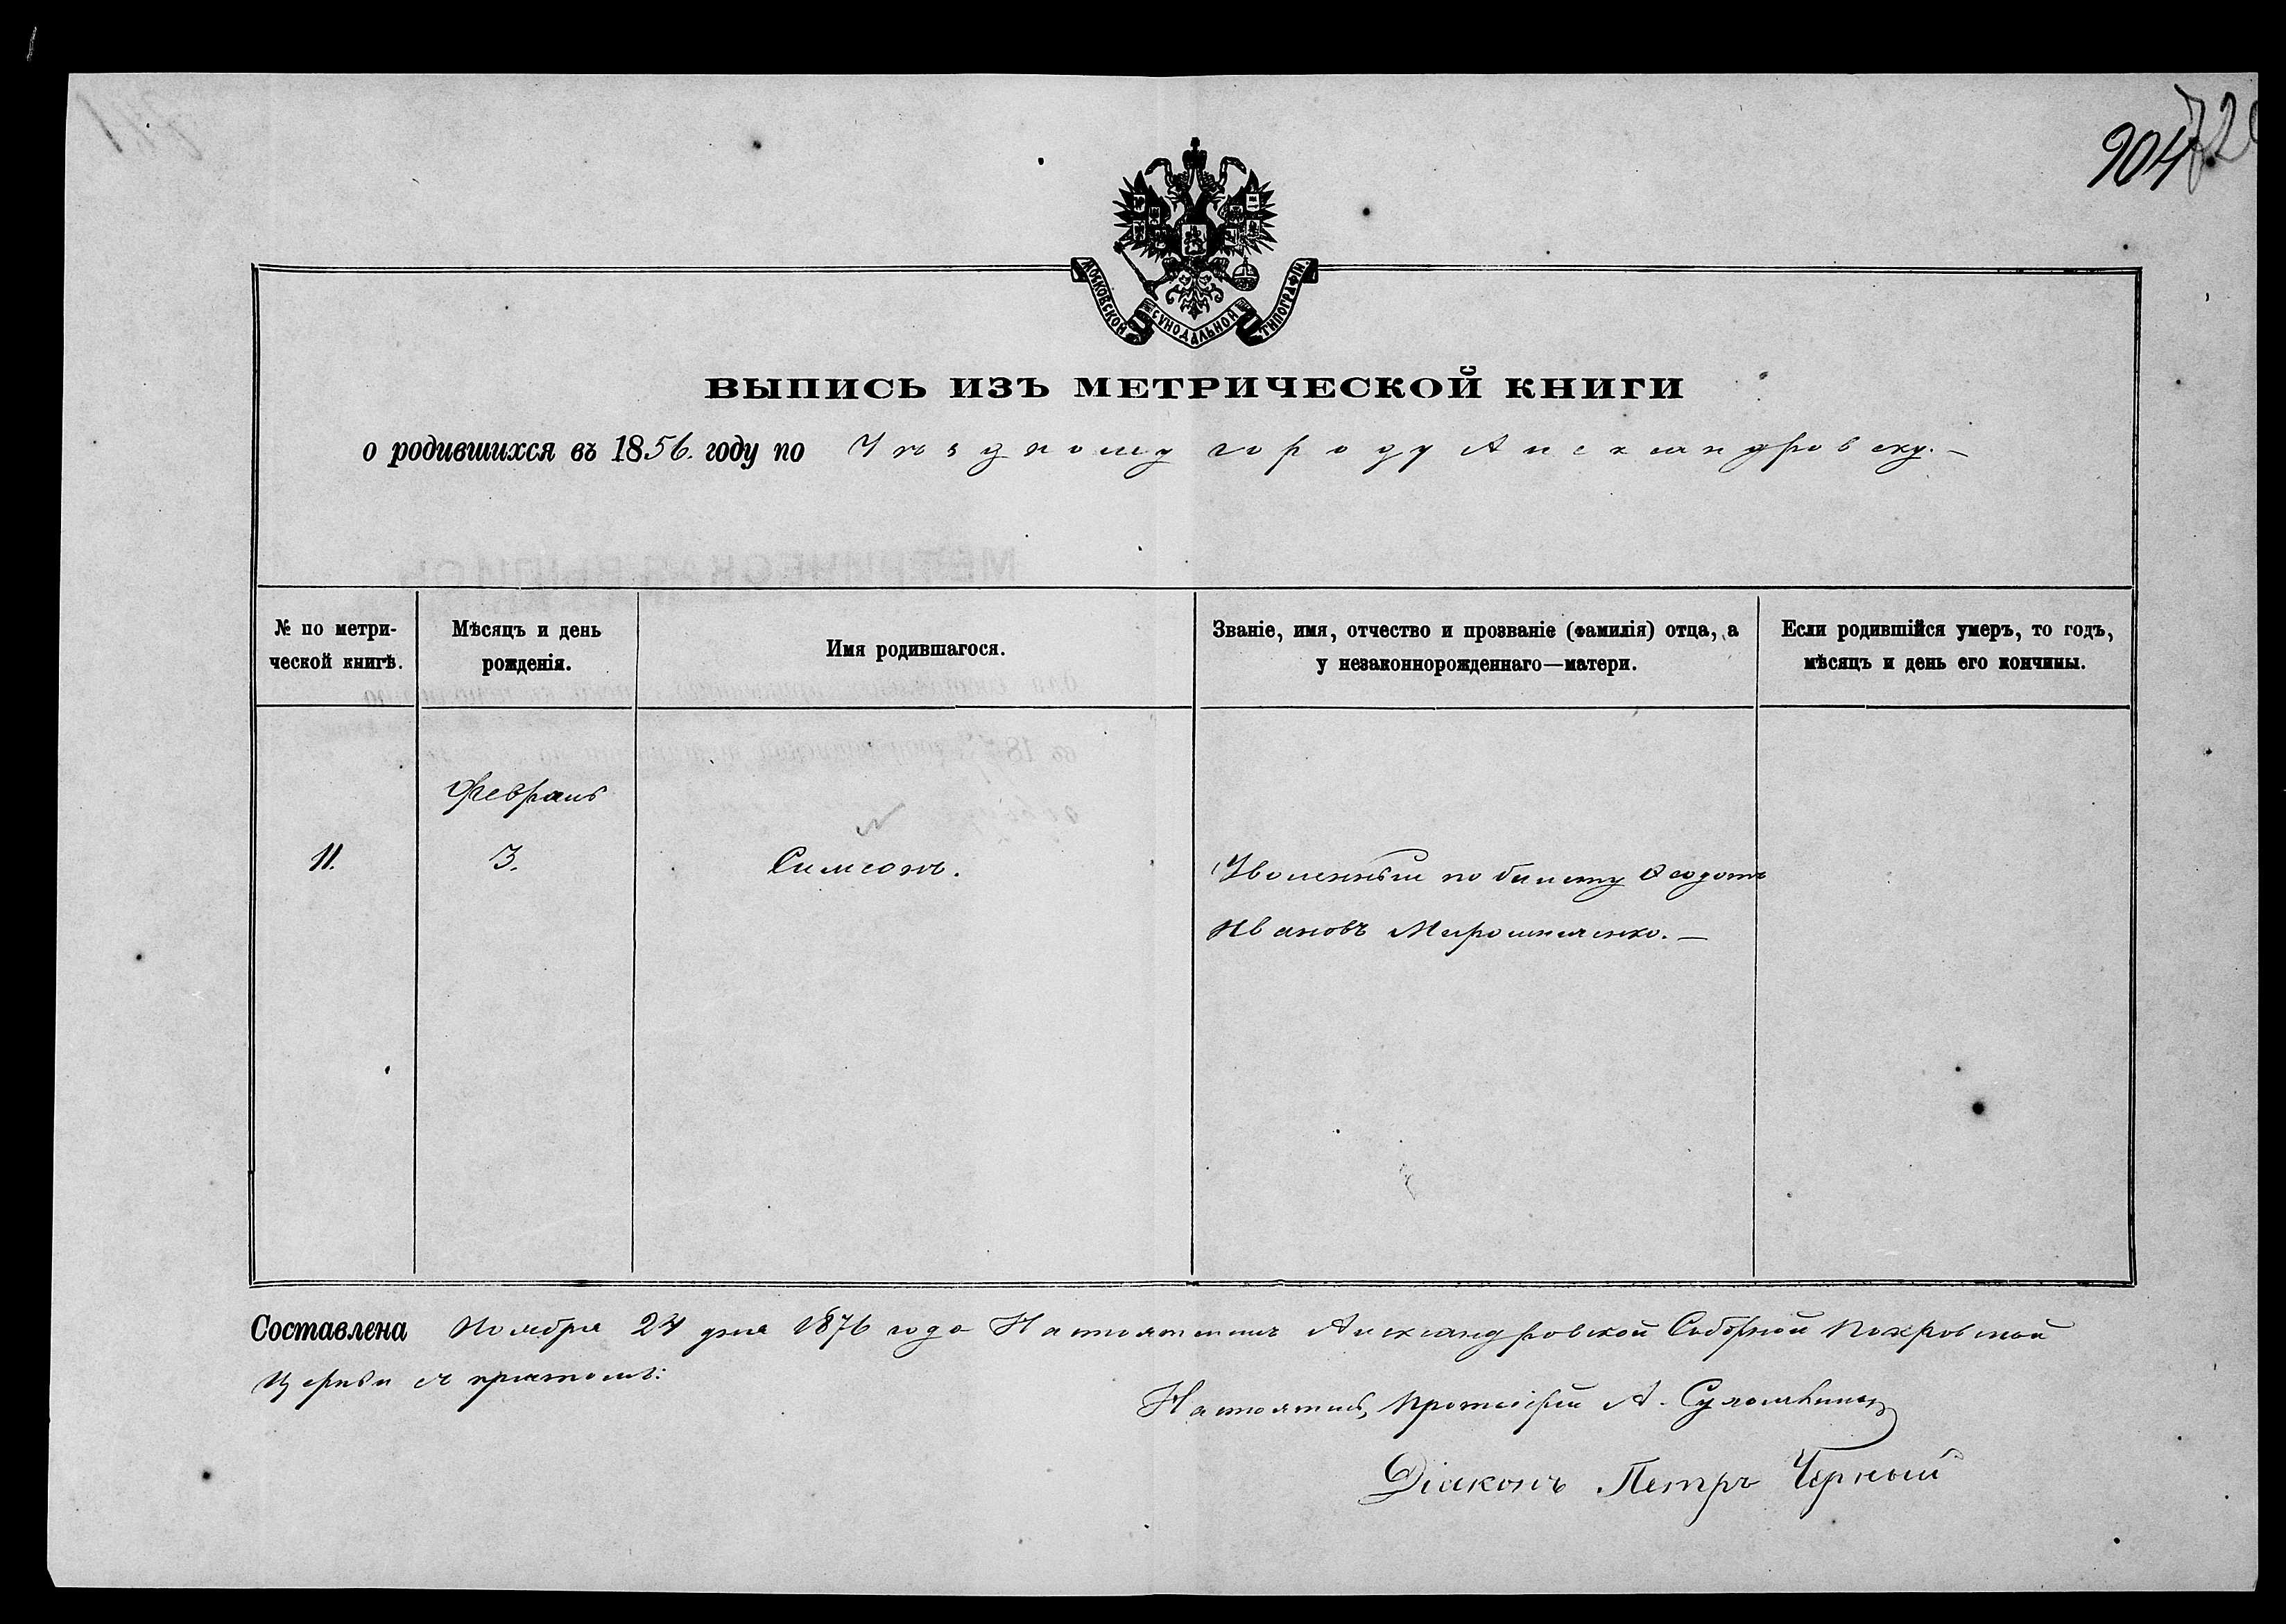 904
МОСКОВСКОЙ СѴНОДАЛЬНОЙ ТИПОГРАФІИ.
ВЫПИСЬ ИЗЪ МЕТРИЧЕСКОЙ КНИГИ
о родившихся въ 1856. году по Уѣздному городу Александровску. —
№ по метри-
ческой книгѣ.
Мѣсяцъ и день
рожденія.
Имя родившагося.
Званіе, имя, отчество и прозваніе (фамилія) отца, а
у незаконнорожденнаго—матери.
Если родившійся умеръ, то годъ,
мѣсяцъ и день его кончины.
Февраль
11.
3.
Симеонъ.
Уволенный по билету Ѳеодотъ
Ивановъ Мирошниченко. —
Составлена Ноября 24 дня 1876 года Настоятелемъ Александровской Соборной Покровской
Церкви съ причтомъ:
Настоятель, Протоіерей А.
Діаконъ Петръ Черный